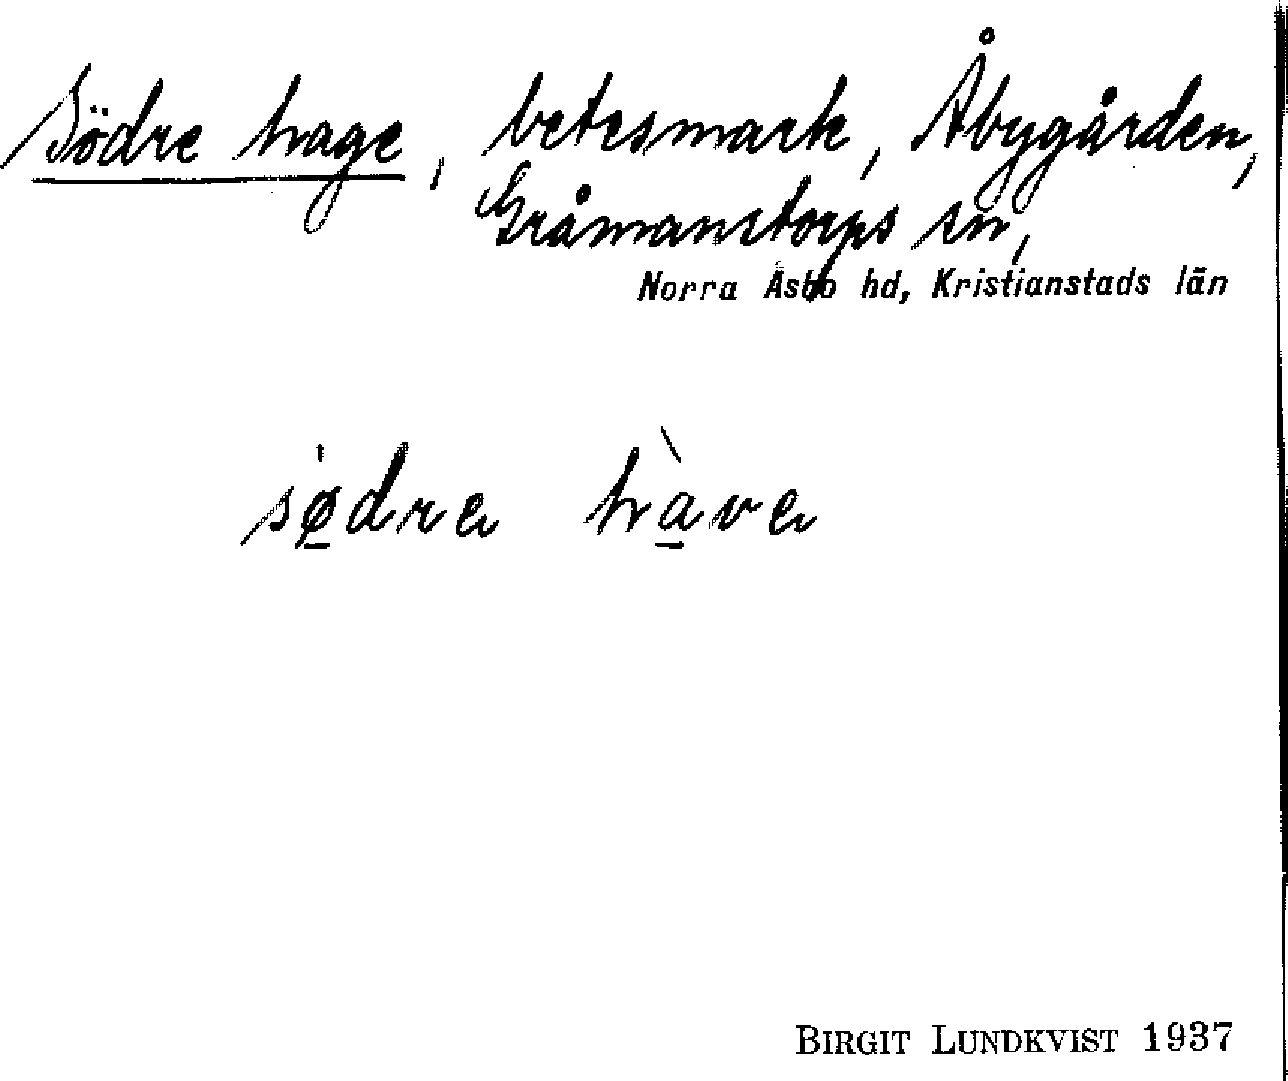 Södre hage, betesmark, Åbygården,
Gråmanstorps sn,
Norra Åsbo hd, Kristianstads län
sø̱dre hàve
BIRGIT LUNDKVIST 1937